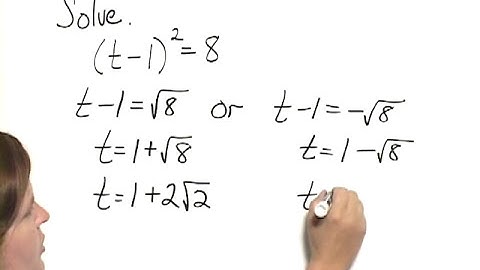 Solve.
(t-1)² = 8
t-1 = √8 or t-1 = -√8
t = 1 + √8 t = 1 - √8
t = 1 + 2√2 t